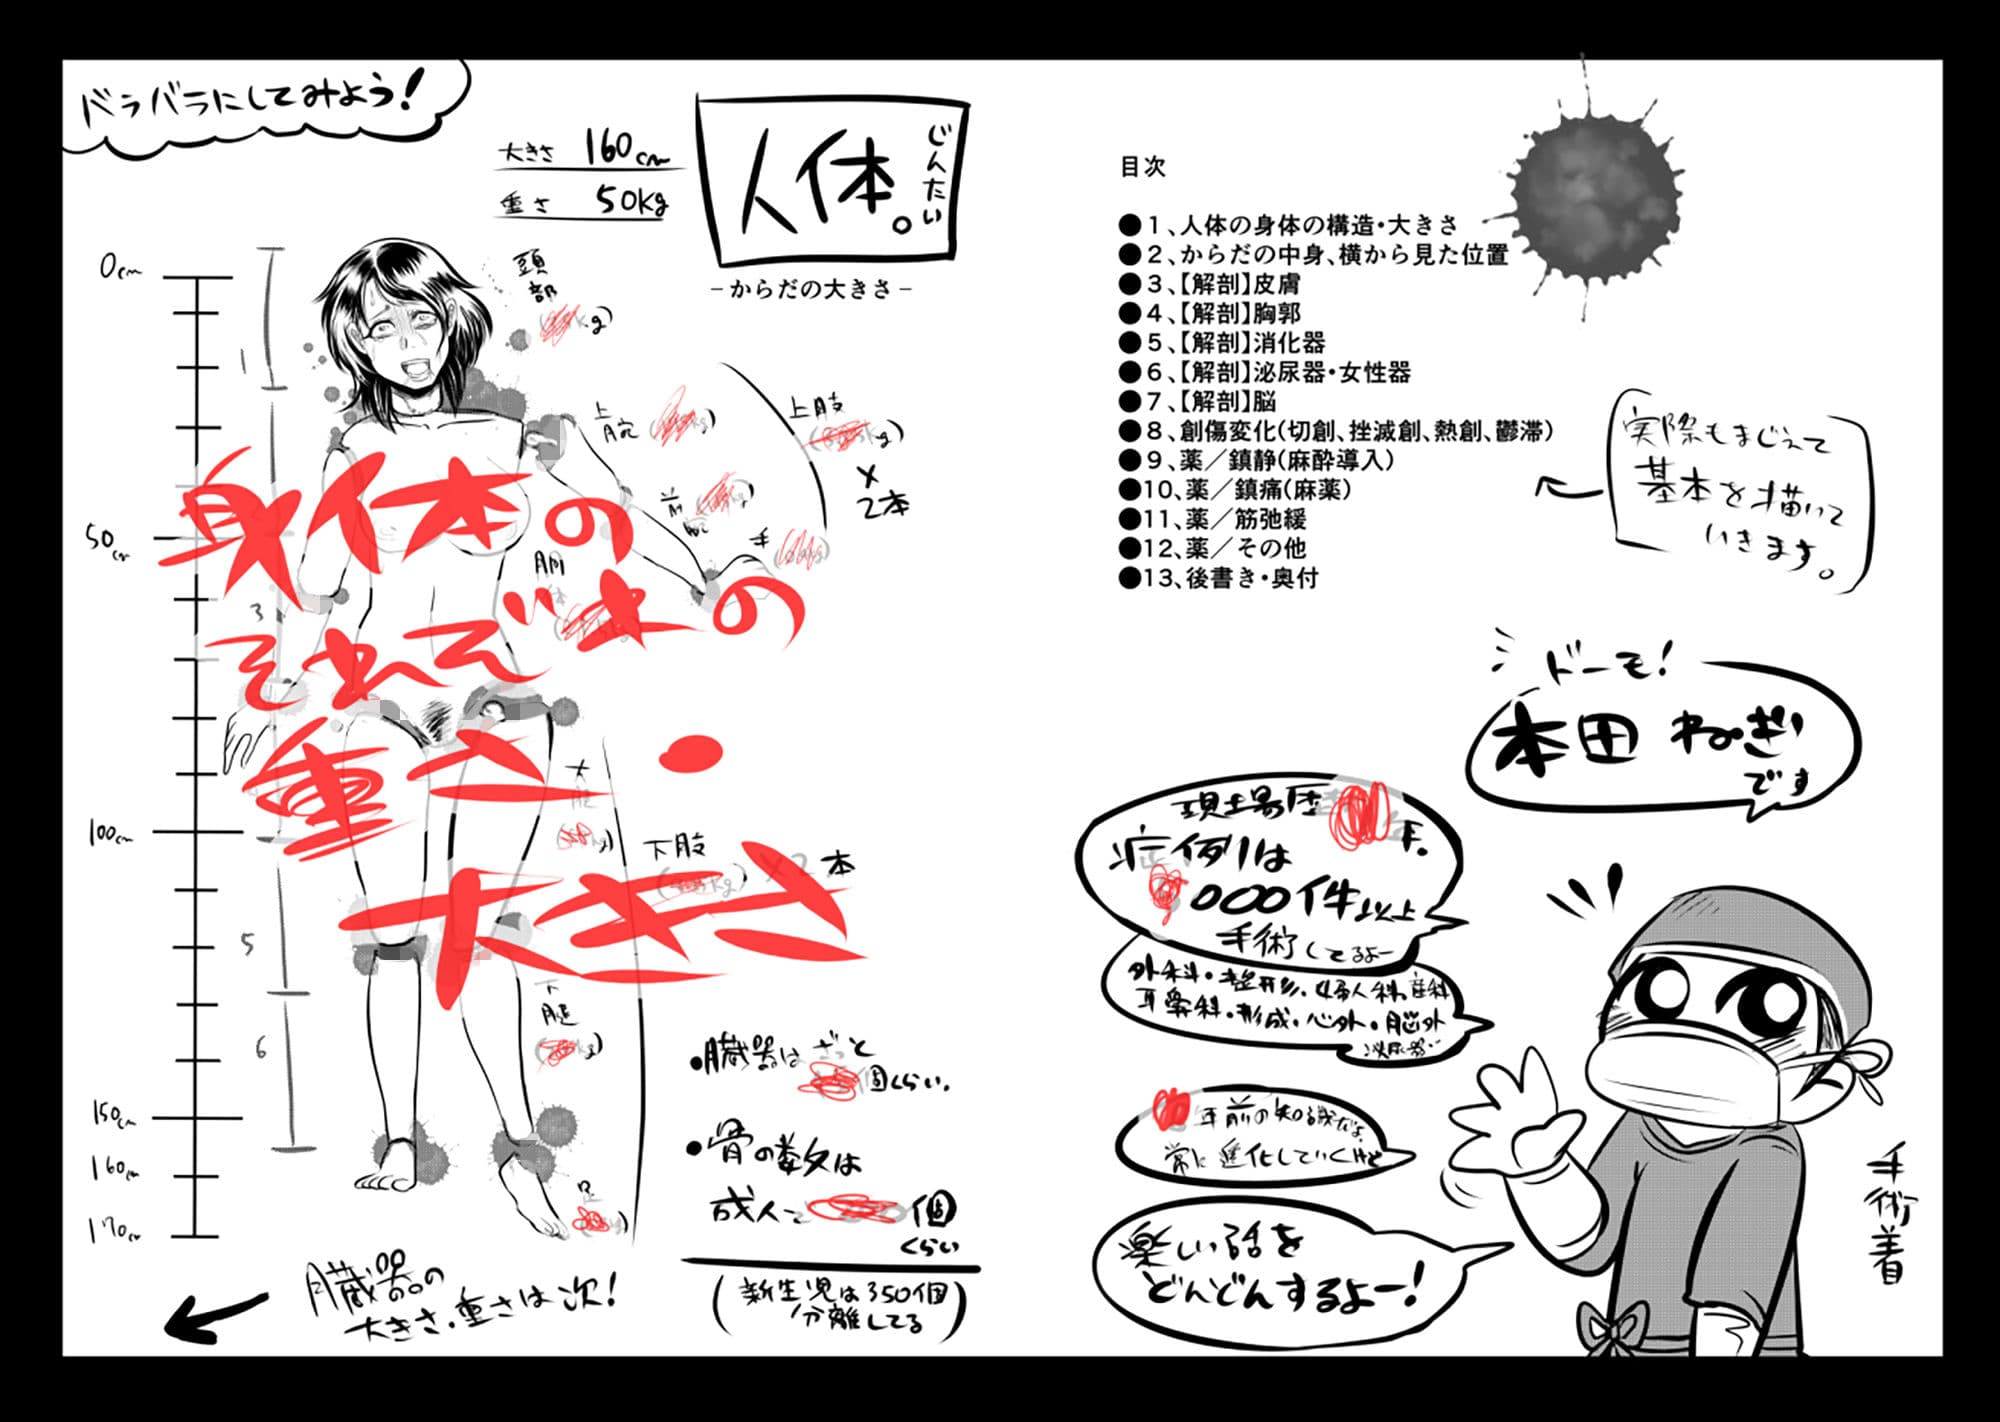 バラバラにしてみよう!
大きさ 160cm
重さ 50Kg
人体。
じんたい
-からだの大きさ-
頭部
kg)
上腕
kg)
上肢
kg)
×
2本
前腕
kg)
手
胴体
身体の
それぞれの
重さ・
大きさ
大腿
kg)
下肢
kg)×2本
下腿
kg)
足
kg)
0cm
50cm
100cm
150cm
160cm
170cm
1
3
5
6
・臓器はざっと
個くらい。
・骨の数は
成人で 個
くらい
(新生児は350個
分離してる)
臓器の
大きさ・重さは次!
目次
●1、人体の身体の構造・大きさ
●2、からだの中身、横から見た位置
●3、【解剖】皮膚
●4、【解剖】胸郭
●5、【解剖】消化器
●6、【解剖】泌尿器・女性器
●7、【解剖】脳
●8、創傷変化(切創、挫滅創、熱創、鬱滞)
●9、薬/鎮静(麻酔導入)
●10、薬/鎮痛(麻薬)
●11、薬/筋弛緩
●12、薬/その他
●13、後書き・奥付
実際もまじえて
基本を描いて
いきます。
ドーモ!
本田 ねぎ
です
現場歴 年。
症例は
000件以上
手術してるよー
外科・整形・婦人科・産科
耳鼻科・形成・心外・脳外
泌尿器…
年前の知識だよ
常に進化していくけど
楽しい話を
どんどんするよー!
手術着